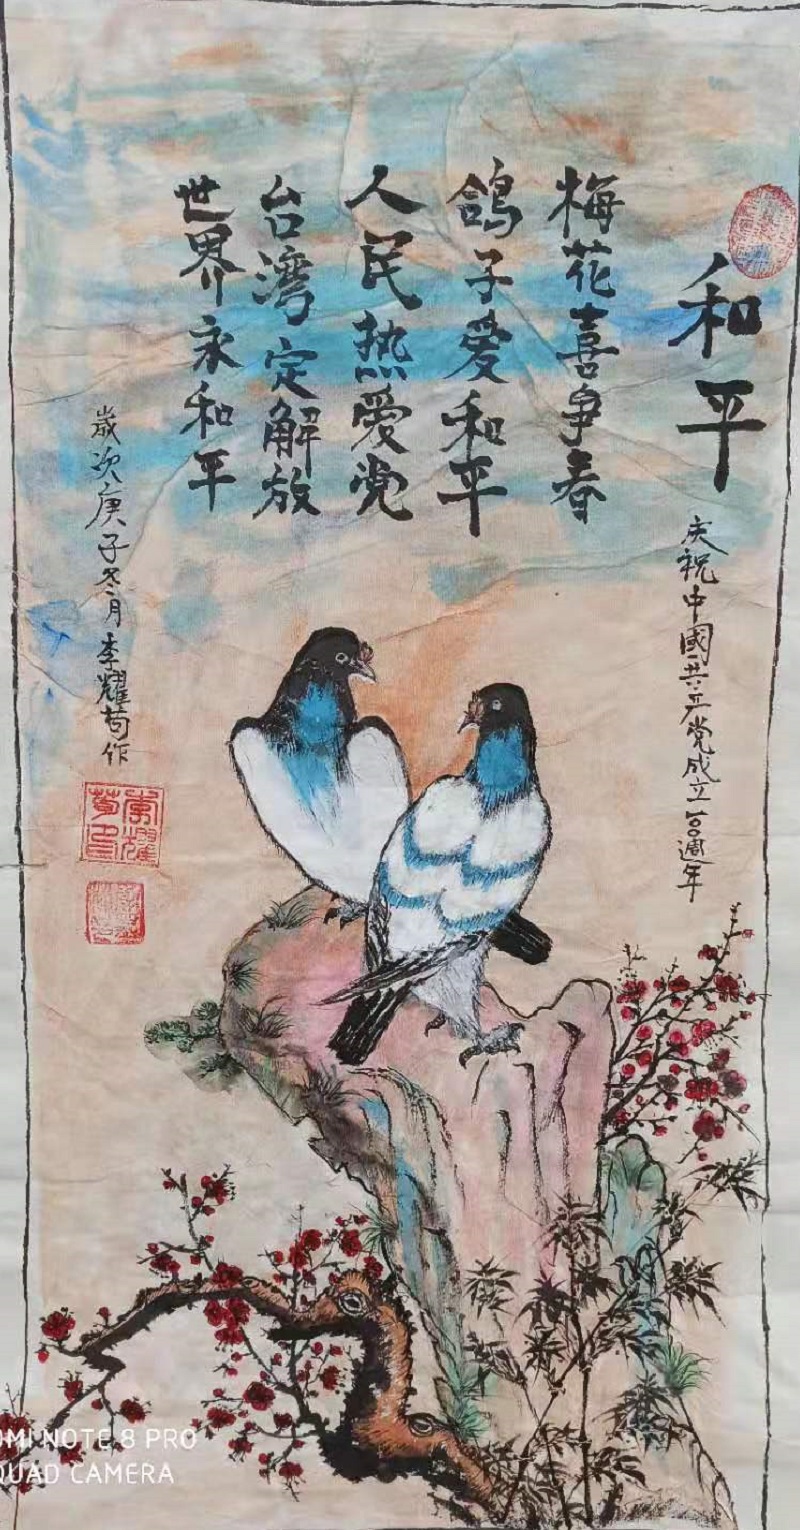 和平
庆祝中國共产党成立一百週年
梅花喜争春
鸽子爱和平
人民热爱党
台湾定解放
世界永和平
歲次庚子冬月李耀苟作
MI NOTE 8 PRO
QUAD CAMERA